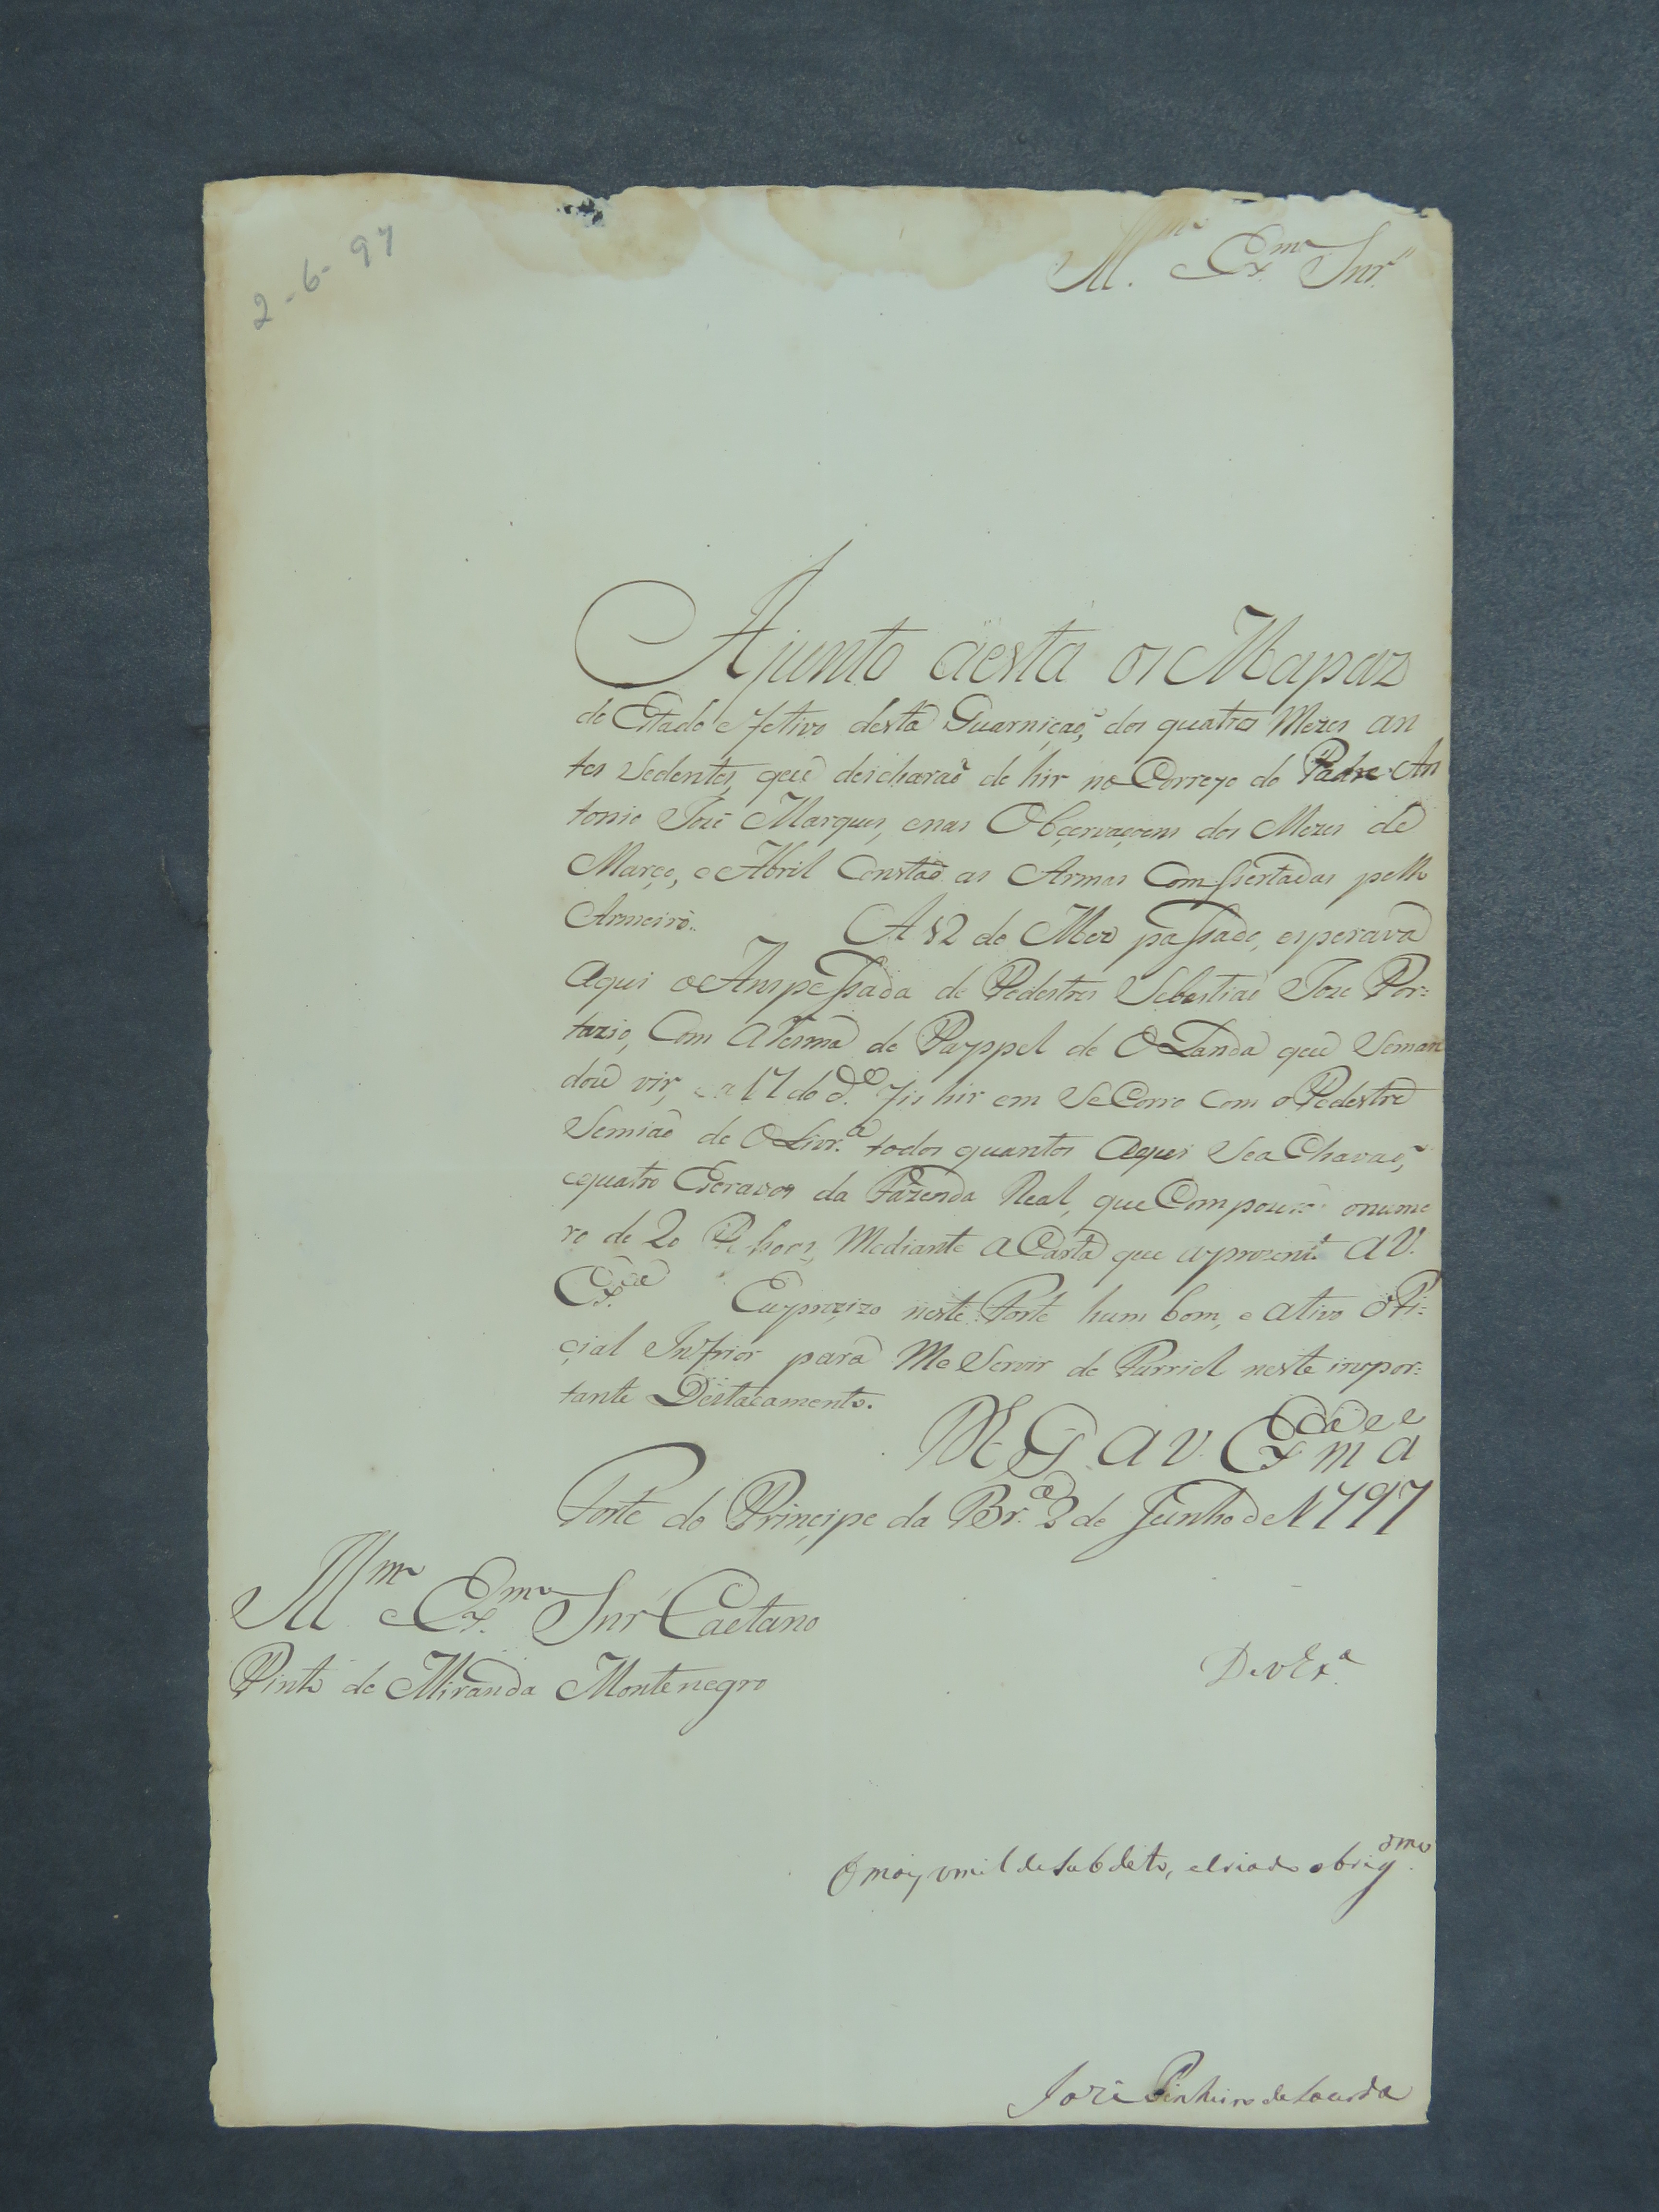 2-6-97
Ill.mo Ex.mo Snr.
Ajunto aesta os Mapaz
do Estado efetivo desta Guarniçaõ, dos quatro Mezes an
tes sedentes, que deicharaõ de hir no Correyo do Padre An
tonio Joze Marques, enas Obçervaçoens dos Mezes de
Março, e Abril Constaõ as Armas Comssertadas pello
Armeiro. A 12 do Mez passado, esperava
Aqui o Anspessada de Pedestres Sebastiaõ Joze Por=
tazio, Com a resma de Payppel de OLanda que Seman
dou vir, e a 17 do d.o fis hir em SeCorro Com o Pedestre
Semiaõ de OLivr.a todos quantos Aqui SeaChavaõ,
equatro Escravos da Fazenda Real, que Compoune onume
ro de 20 Pessoas, Mediante aCarta que aprozent. A V.
Ex.ca Euprecizo neste Forte hum bom, e ativo OFi=
çial Infrior para Me Servir de Furriel neste impor=
tante Destacamento.
D.s G. A V. Ex.ca m a
Forte do Principe da Br.a 2 de Junho de 1797
Ill.mo Ex.mo Snr Caetano
Pinto de Miranda Montenegro
De V Ex.a
O mais umilde subdeto, eCriado obrig.dmo
Joze Pinheiro de Lacerda